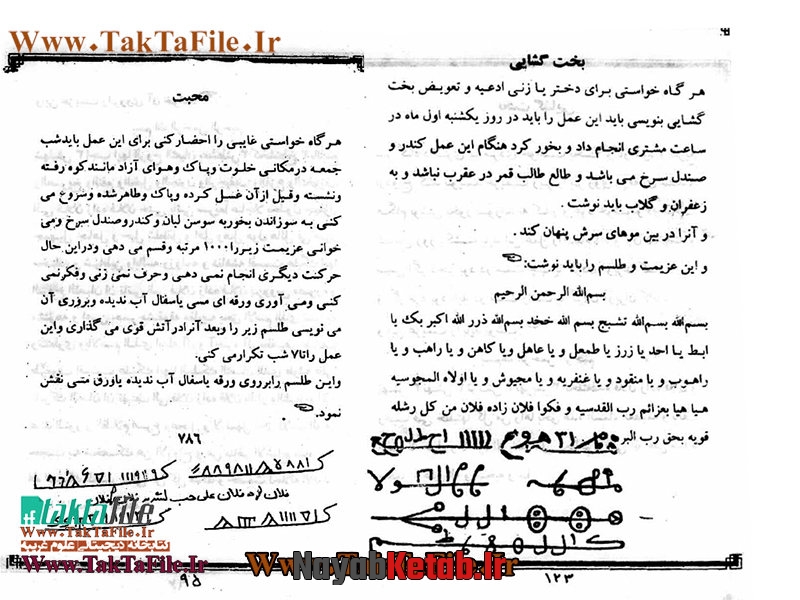 Www.TakTaFile.Ir
بخت گشایی
هر گاه خواستی برای دختر یا زنی ادعیه و تعویض بخت
گشایی بنویسی باید این عمل را باید در روز یکشنبه اول ماه در
ساعت مشتری انجام داد و بخور کرد هنگام این عمل کندر و
صندل سرخ می باشد و طالع طالب قمر در عقرب نباشد و به
زعفران و گلاب باید نوشت .
و آنرا در بین موهای سرش پنهان کند .
و این عزیمت و طلسم را باید نوشت:
بسم‌الله الرحمن الرحیم
بسم‌الله بسم‌الله تشبج بسم الله خخد بسم‌الله ذرر الله اکبر بك یا
ابط یا احد یا زرز یا طمعل و یا عاهل ویا کاهن و یا راهب و یا
راهوب و یا منقود و یا غنفریه و یا مجیوش و یا اولاه المجوسیه
هیا هیا بعزائم رب القدسیه و فکوا فلان زاده فلان من کل رشله
قویه بحق رب البر
۱۲۳
محبت
هرگاه خواستی غایبی را احضارکنی برای این عمل بایدشب
جمعه درمکانی خلوت وپاک وهوای آزاد مانندکوه رفته
ونشسته وقبل ازآن غسل کرده وپاک وطاهرشده وشروع می
کنی به سوزاندن بخوربه سوسن لبان وکندروصندل سرخ ومی
خوانی عزیمت زیررا۱۰۰۰ مرتبه وقسم می دهی ودراین حال
حرکت دیگری انجام نمی دهی وحرف نمی زنی وفکرنمی
کنی ومی آوری ورقه ای مسی یاسفال آب ندیده وبرروی آن
می نویسی طلسم زیر را وبعد آنرادرآتش قوی می گذاری واین
عمل راتا۷ شب تکرارمی کنی.
واین طلسم رابرروی ورقه یاسفال آب ندیده یاورق مسی نقش
نمود.
۷۸۶
۹۵
taktafile
Www.TakTaFile.Ir
Www.TakTaFile.Ir
Www.TakTaFile.Ir
NayabKetab.Ir